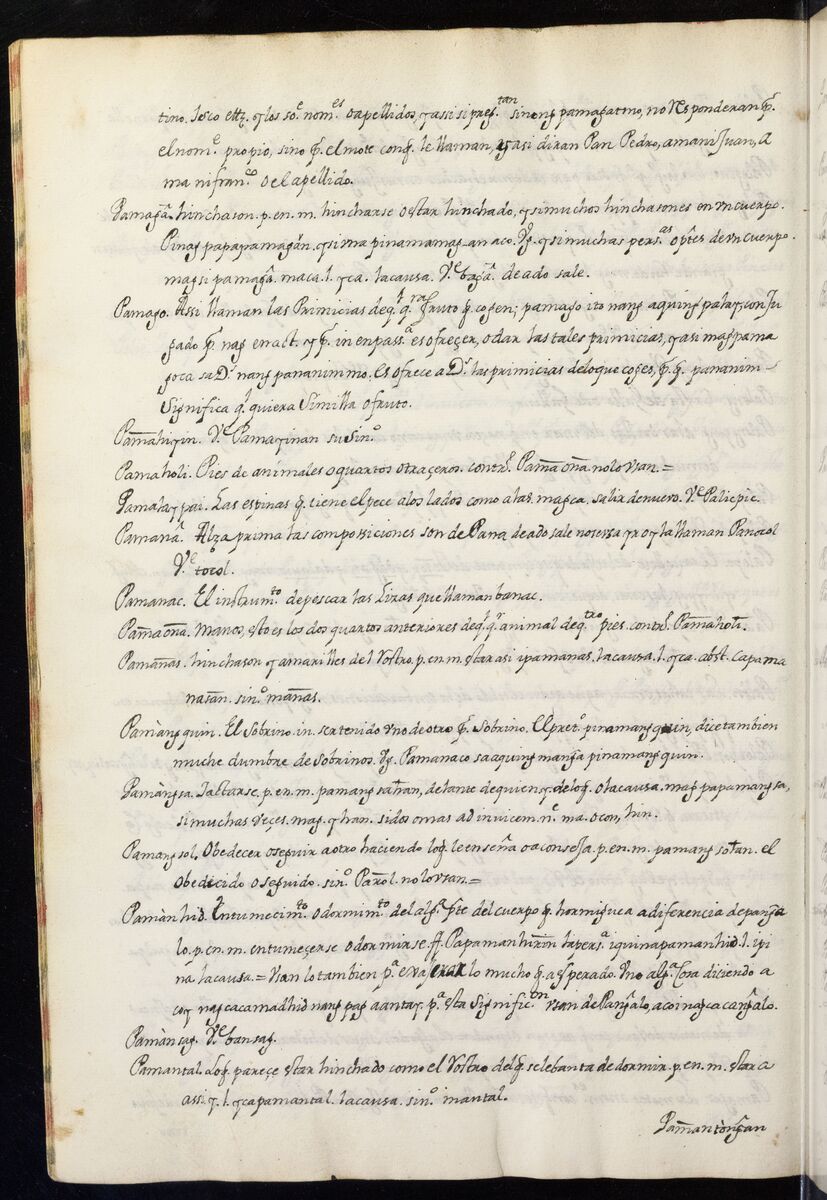 tino. Tesco ettz. y los so.^e nom.^es o apellidos, y assi si preg.^tan sinong pamagatmo, no Responderan p.^r
el nom.^e proprio, sino p.^r el mote conq̃ le llaman, y asi diran Pan Pedro, amani Juan, a
ma ni fran.^co o el apellido.
Pamaga. hinchason. p. en. m. hincharse o star hinchado, y si muchos hinchasones en vn cuerpo.
Pinag papapamagan, y si vna pinamamag-an aco. Vg. y si muchas pers.^as o p.^tes de vn cuerpo.
magsi pamaga. maca. l. yca. la causa. V.^e baga. de ado sale.
Pamago. Assi llaman las Primicias de q.^l q.^ra fruto q̃ cogen; pamago ito nang aquing palay, conJu
gado p.^r nag en act. y p.^r in en pass.^a es ofreçer, o dar las tales primicias, y asi magpama
goca sa D.^s nang pananimmo. es ofrece a D.^s las primicias de lo que coges, p.^r q̃ pananim-
Significa q.^l quiera Similla o fruto.
Pamahiyin. V.^e Pamayinan su sin.^o
Pamaholi. Pies de animales o quartos otraçeros. contr.^o Pamaona. no lo vsan.=
Pamalaypai. Las espinas q̃ tiene el pece a los lados como alas. magca. salir de nuevo. V.^e Palicpic.
Pamana. Alza prima las composiciones son de Pana de ado sale no se vsa yro y la llaman Panocol
V.^e tocol.
Pamanac. El instrum.^to de pescar las Liras que llaman banac.
Pamaona. Manos, esto es los dos quartos anteriores de q.^l q.^r animal de q.^tro pies. contr.^o Pamaholi.
Pamanas. hinchason y amarilles del Rostro. p. en. m. star asi ipamanas. la causa. l. yca. abst. capama
nasan. sin.^o manas.
Pamangquin. El Sobrino. in. ser tenido vno de otro p.^r Sobrino. El pret.^o pinamangquin, dice tambien
muchedumbre de sobrinos. Vg. Pamanaco sa aquing manga pinamangquin.
Pamangsa. Jactarse. p. en. m. pamangsahan, delante de quien, y de lo q̃. o la causa. mag papamangsa,
si muchas veçes. mag. y han. si dos o mas ad invicem. n.^e ma. o con, hin.
Pamangsol. Obedecer o seguir a otro haciendo lo q̃ le enseña o aconseja. p. en. m. pamangsolan. el
Obedecido o seguido. sin.^o Panol. no lo vsan.=
Pamanhid. Entumecim.^to o dormim.^to del alg.^a p.^te del cuerpo q̃ hormiguea a diferencia de panga
lo. p. en. m. entumeçerse o dormirse. ff. Papamanhirin la pers.^a iquinapamanhid. l. ipi
na la causa.= vsan lo tambien p.^a exajerar lo mucho q̃ a esperado. Vno alg.^a Cosa diciendo a
coy nagcacamadhid nang pag aantay. p.^a esta Signific.^on vsan de Pangalo, acoi nagcacangalo.
Pamansag. V.^e bansag.
Pamantal. Lo q̃ pareçe star hinchado como el Rostro del q̃ se lebanta de dormir. p. en. m. star a
assi y. l. yca pamantal. la causa. sin.^o mantal.
Pamantongan